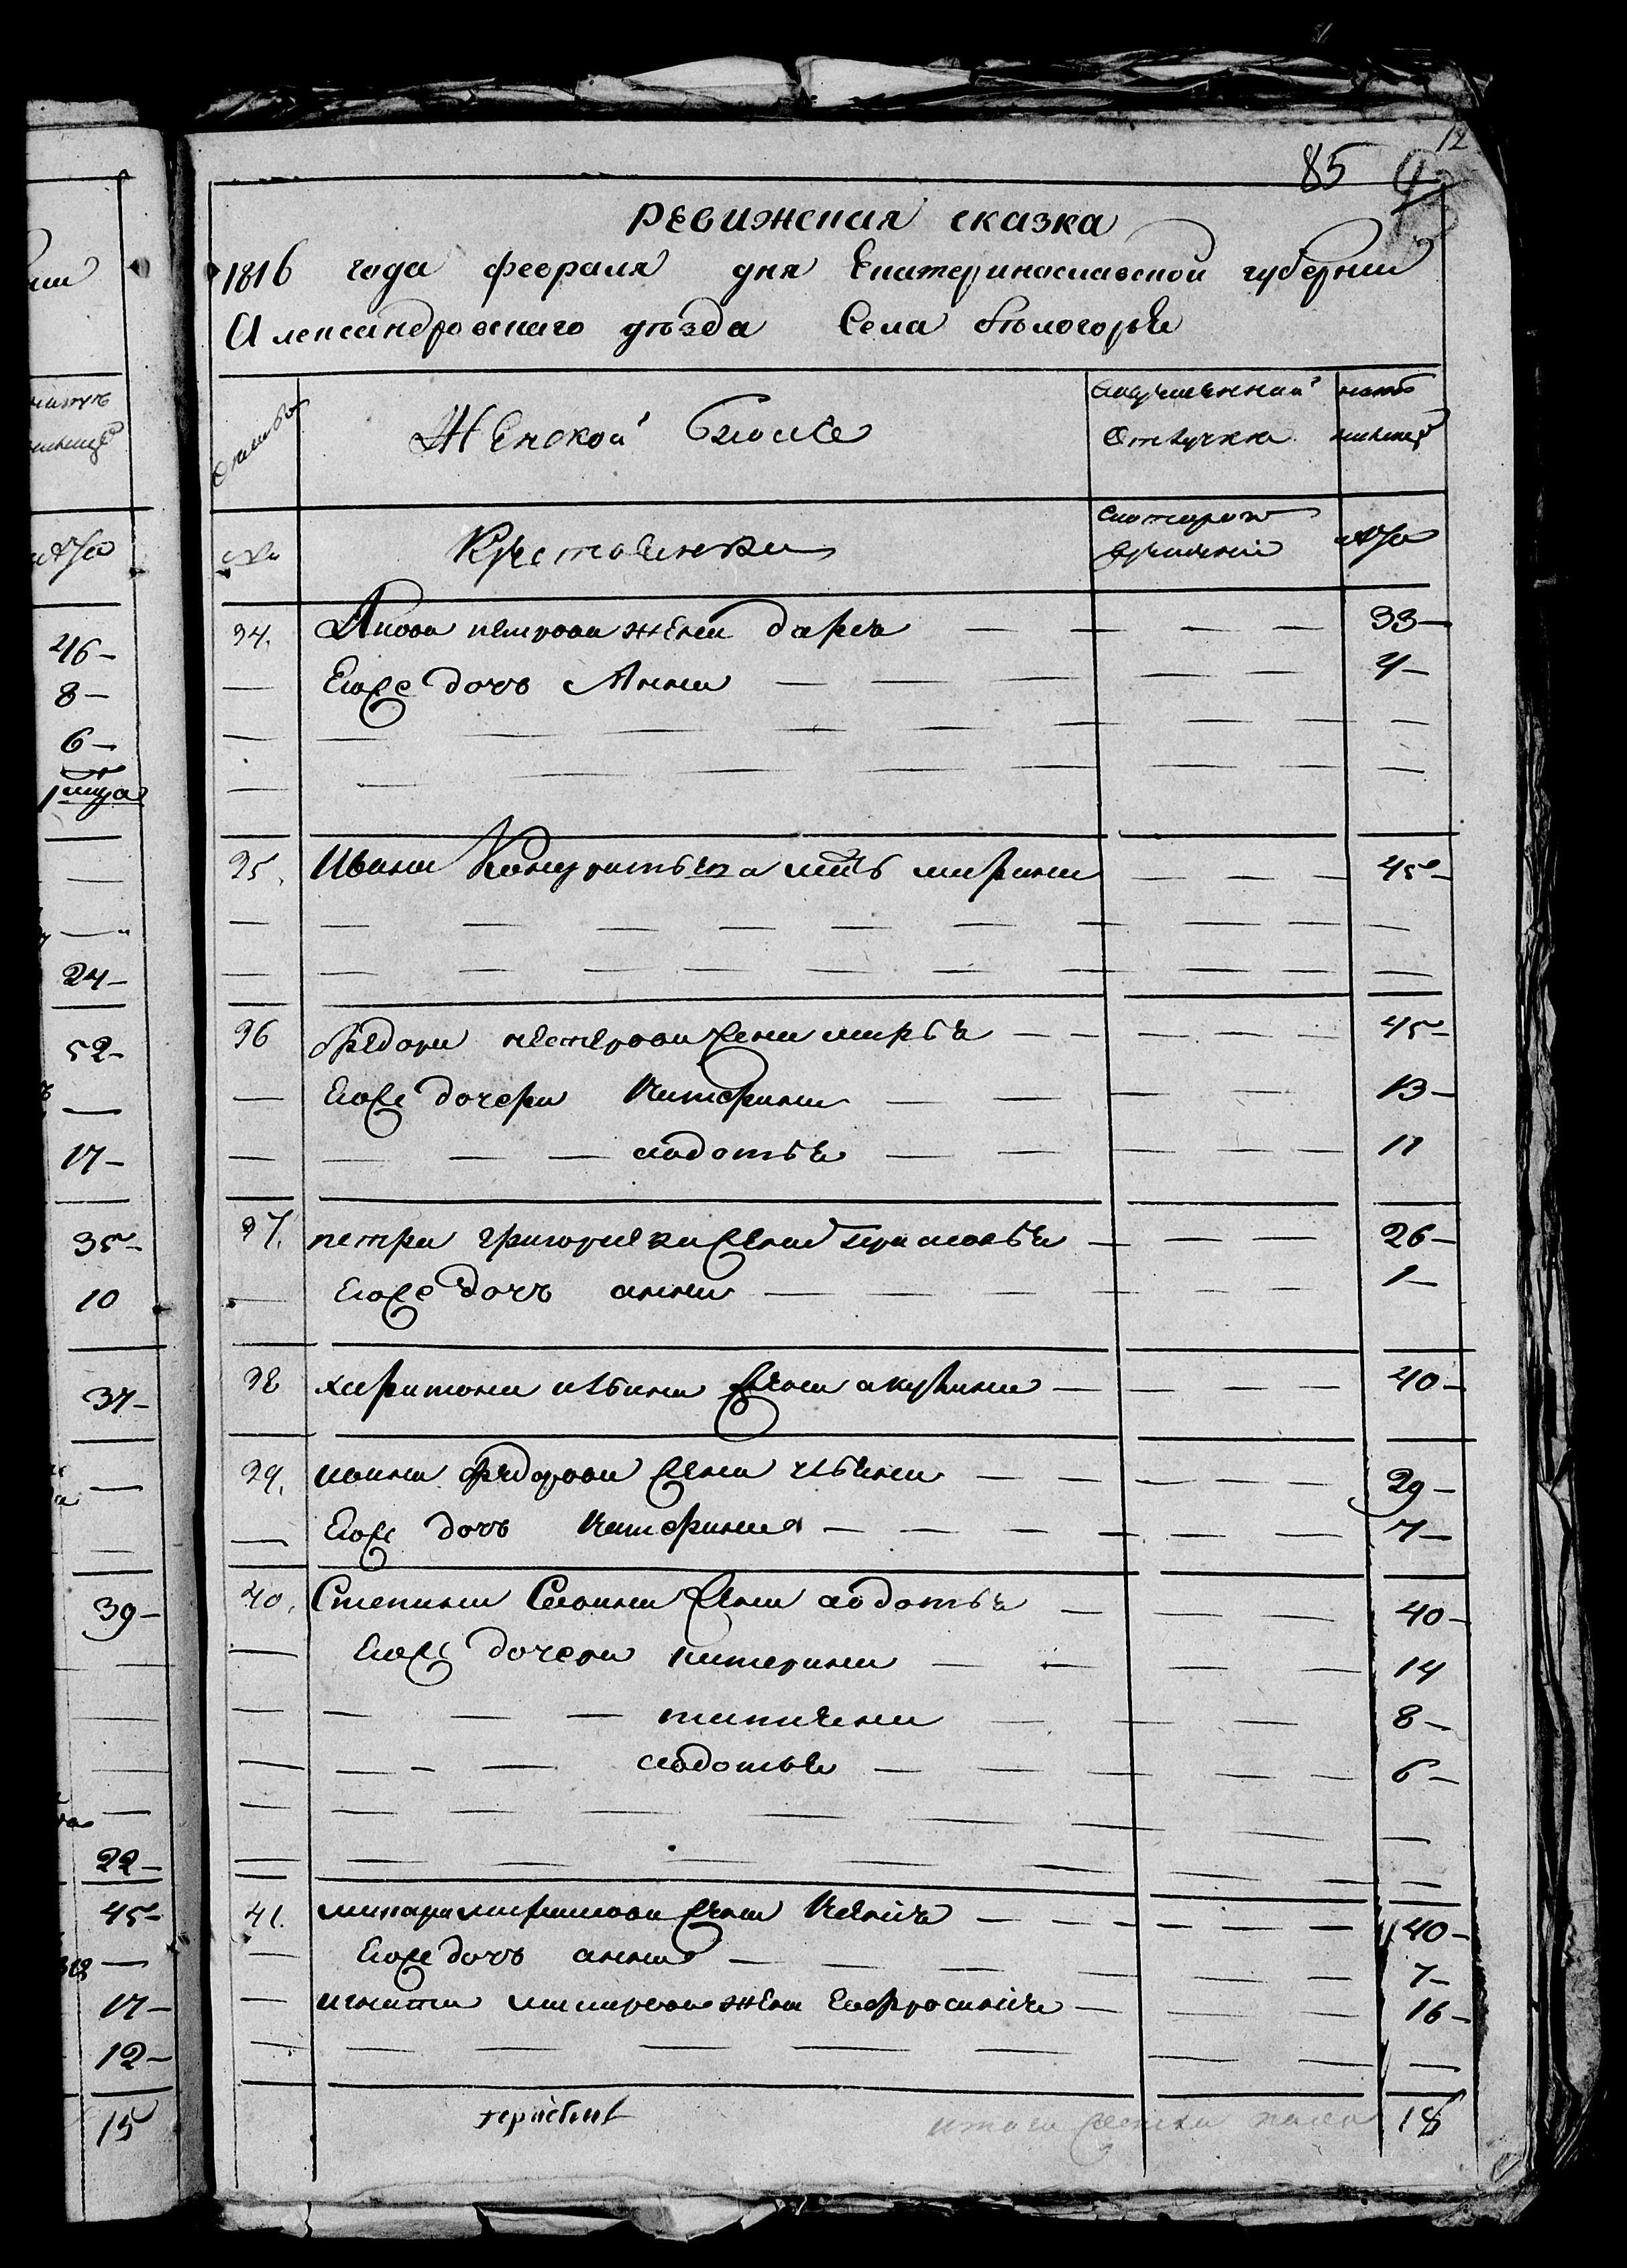 12
85
ревижская сказка
1816 года февраля дня Екатеринославской губернии
Александровскаго уезда Села белогорья
Семьи
Женской пол
Во временной отлучке
лета
№
Крестьянки
с которого времени
лета
34. Якова петрова жена дарья — 33
Егоже дочь Анна — 4
35. Ивана Кондратьева мать марина — 45
36 федора нестерова жена марья — 45
Егоже дочери катерина — 13
авдотья — 11
37. петра григорьева жена прасковья — 26
Егоже дочь анна — 1
38 харитона ильина жена акулина — 40
39. ивана федорова жена ульяна — 29
Егоже дочь катерина — 7
40. Степана Савина жена авдотья — 40
Егоже дочери катерина — 14
татияна — 8
авдотья — 6
41. макара жена Ксения — 40
Егоже дочь анна — 7
игната макарова жена Ефросиния — 16
итого женска пола 18
46
8
6
24
52
17
35
10
37
39
22
45
17
12
15